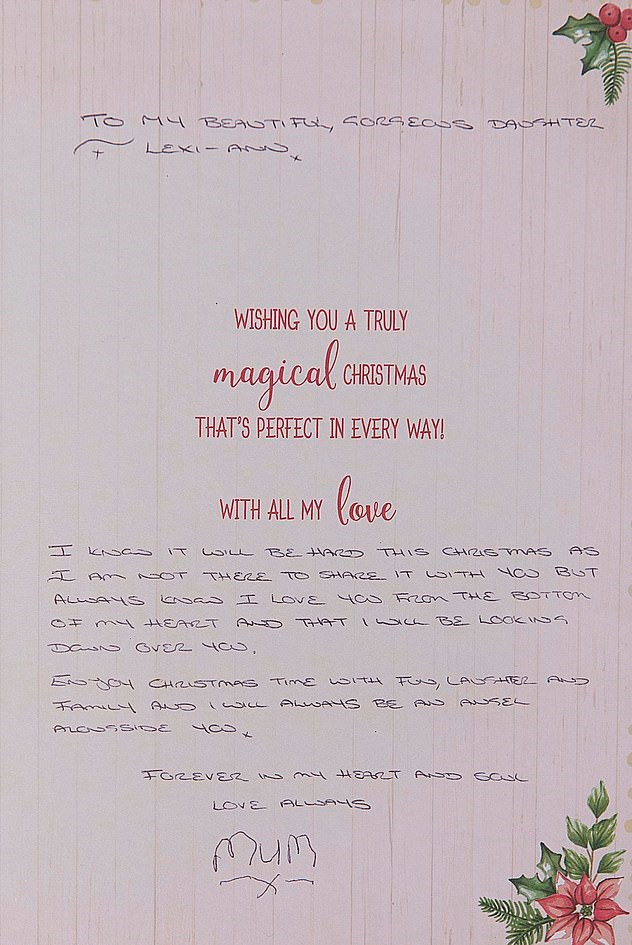 TO MY BEAUTIFUL, GORGEOUS DAUGHTER
LEXI-ANN x
WISHING YOU A TRULY
magical CHRISTMAS
THAT'S PERFECT IN EVERY WAY!
WITH ALL MY love
I KNOW IT WILL BE HARD THIS CHRISTMAS AS
I AM NOT THERE TO SHARE IT WITH YOU BUT
ALWAYS KNOW I LOVE YOU FROM THE BOTTOM
OF MY HEART AND THAT I WILL BE LOOKING
DOWN OVER YOU.
ENJOY CHRISTMAS TIME WITH FUN, LAUGHTER AND
FAMILY AND I WILL ALWAYS BE AN ANGEL
ALONGSIDE YOU x
FOREVER IN MY HEART AND SOUL
LOVE ALWAYS
MUM
x